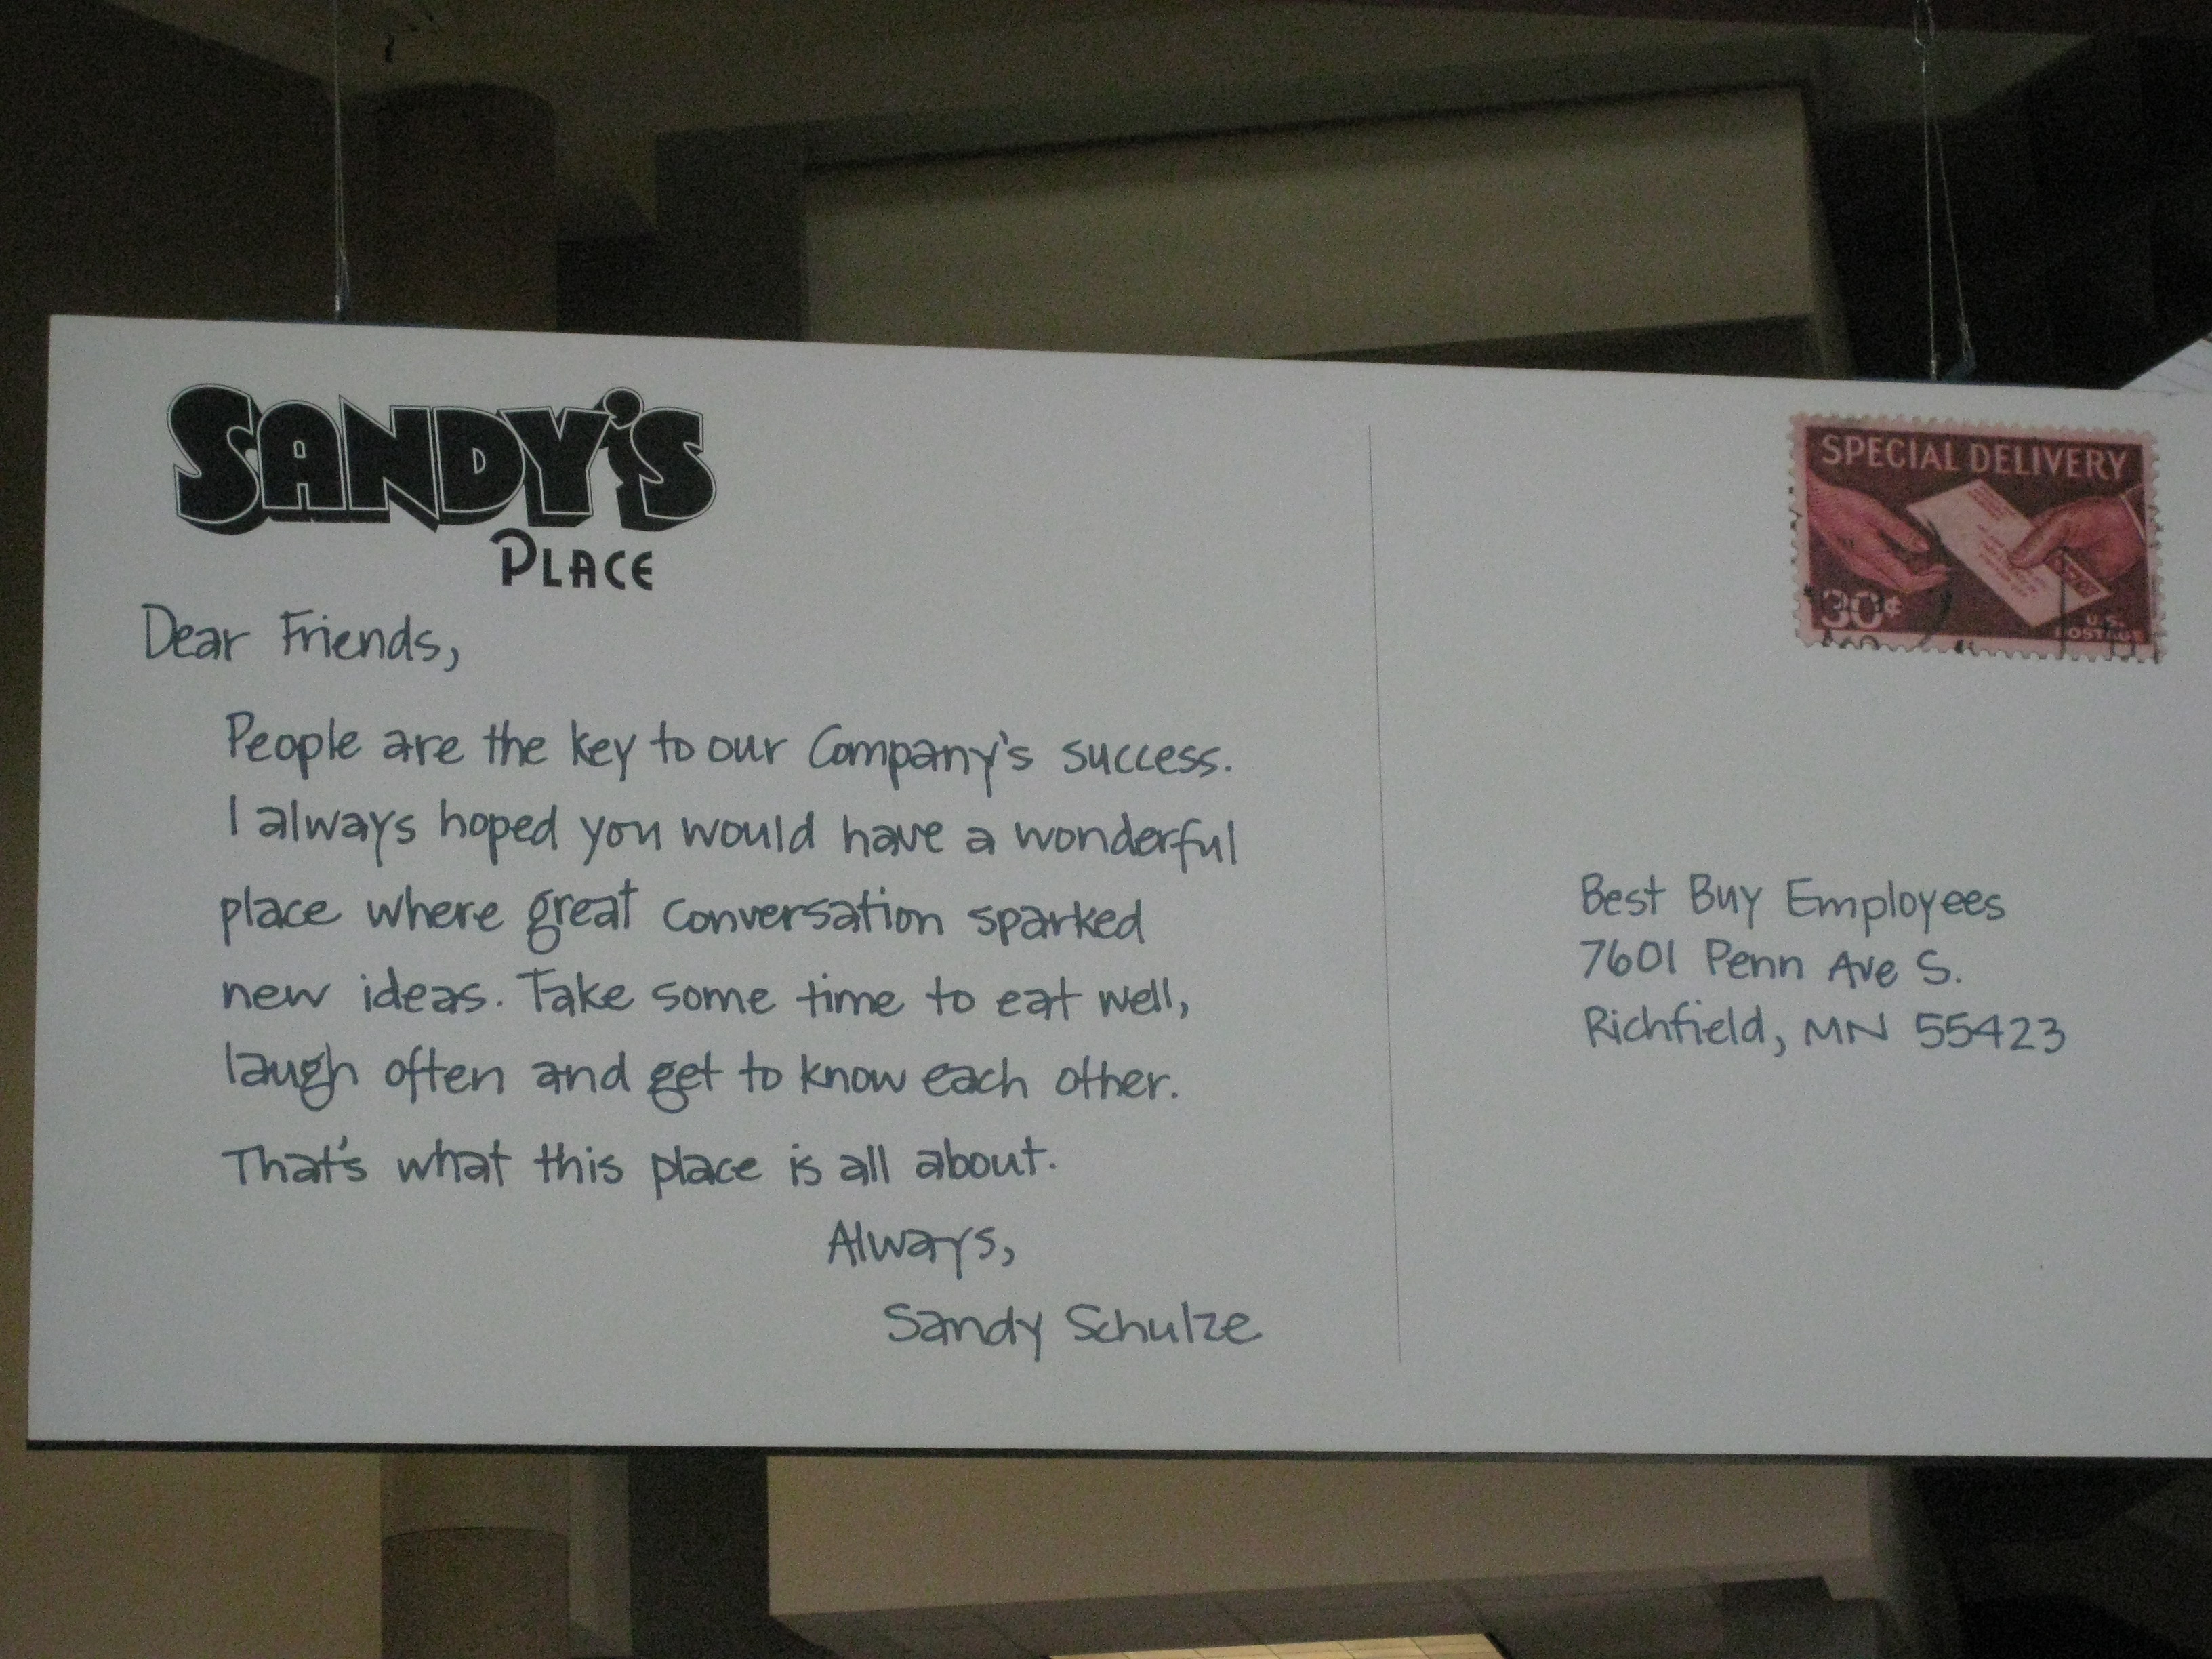 SANDY'S
PLACE
Dear Friends,
People are the key to our Company's success.
I always hoped you would have a wonderful
place where great conversation sparked
new ideas. Take some time to eat well,
laugh often and get to know each other.
That's what this place is all about.
Always,
Sandy Schulze
SPECIAL DELIVERY
30¢
U.S.
POSTAGE
Best Buy Employees
7601 Penn Ave S.
Richfield, MN 55423